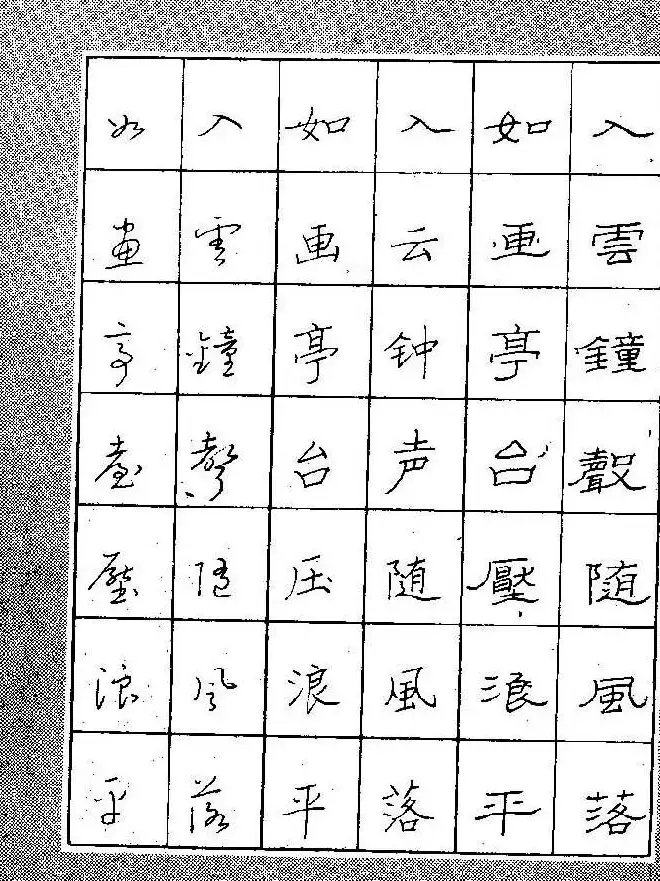 入雲鐘聲随風落
如画亭台壓浪平
入云钟声随風落
如画亭台压浪平
入雲鐘聲随风落
如畫亭臺壓浪平